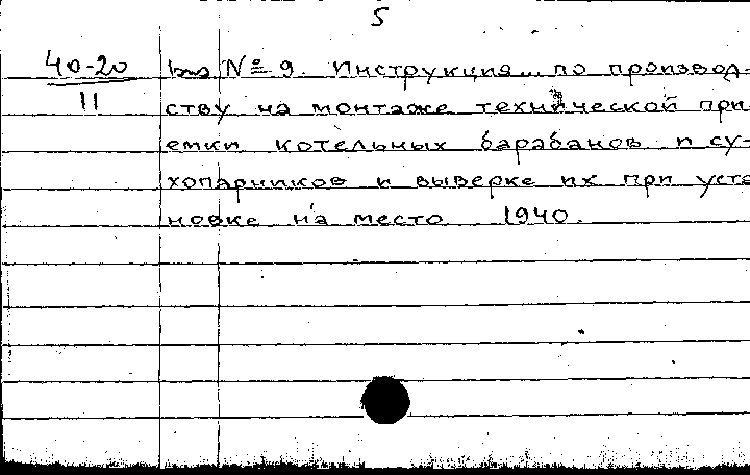 5
40-20
11
вып № 9. Инструкция... по производ-
ству на монтаже технической при
емки котельных барабанов и су-
хопарников и выверке их при уста
новке на место 1940.